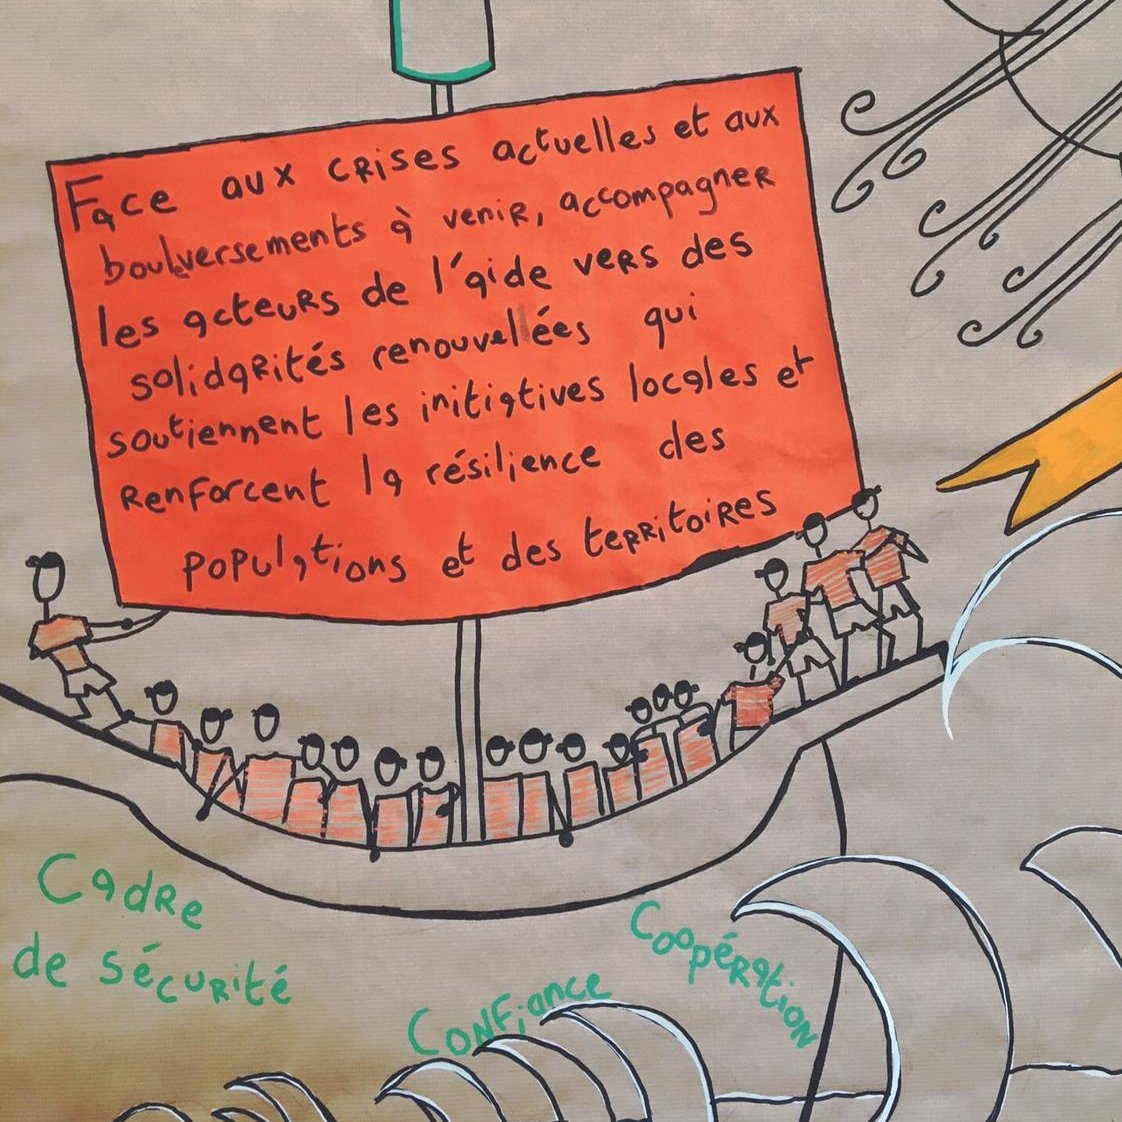 Face aux crises actuelles et aux
boulversements à venir, accompagner
les acteurs de l'aide vers des
solidarités renouvellées qui
soutiennent les initiatives locales et
renforcent la résilience des
populations et des territoires
Cadre
de sécurité
Confiance
Coopération